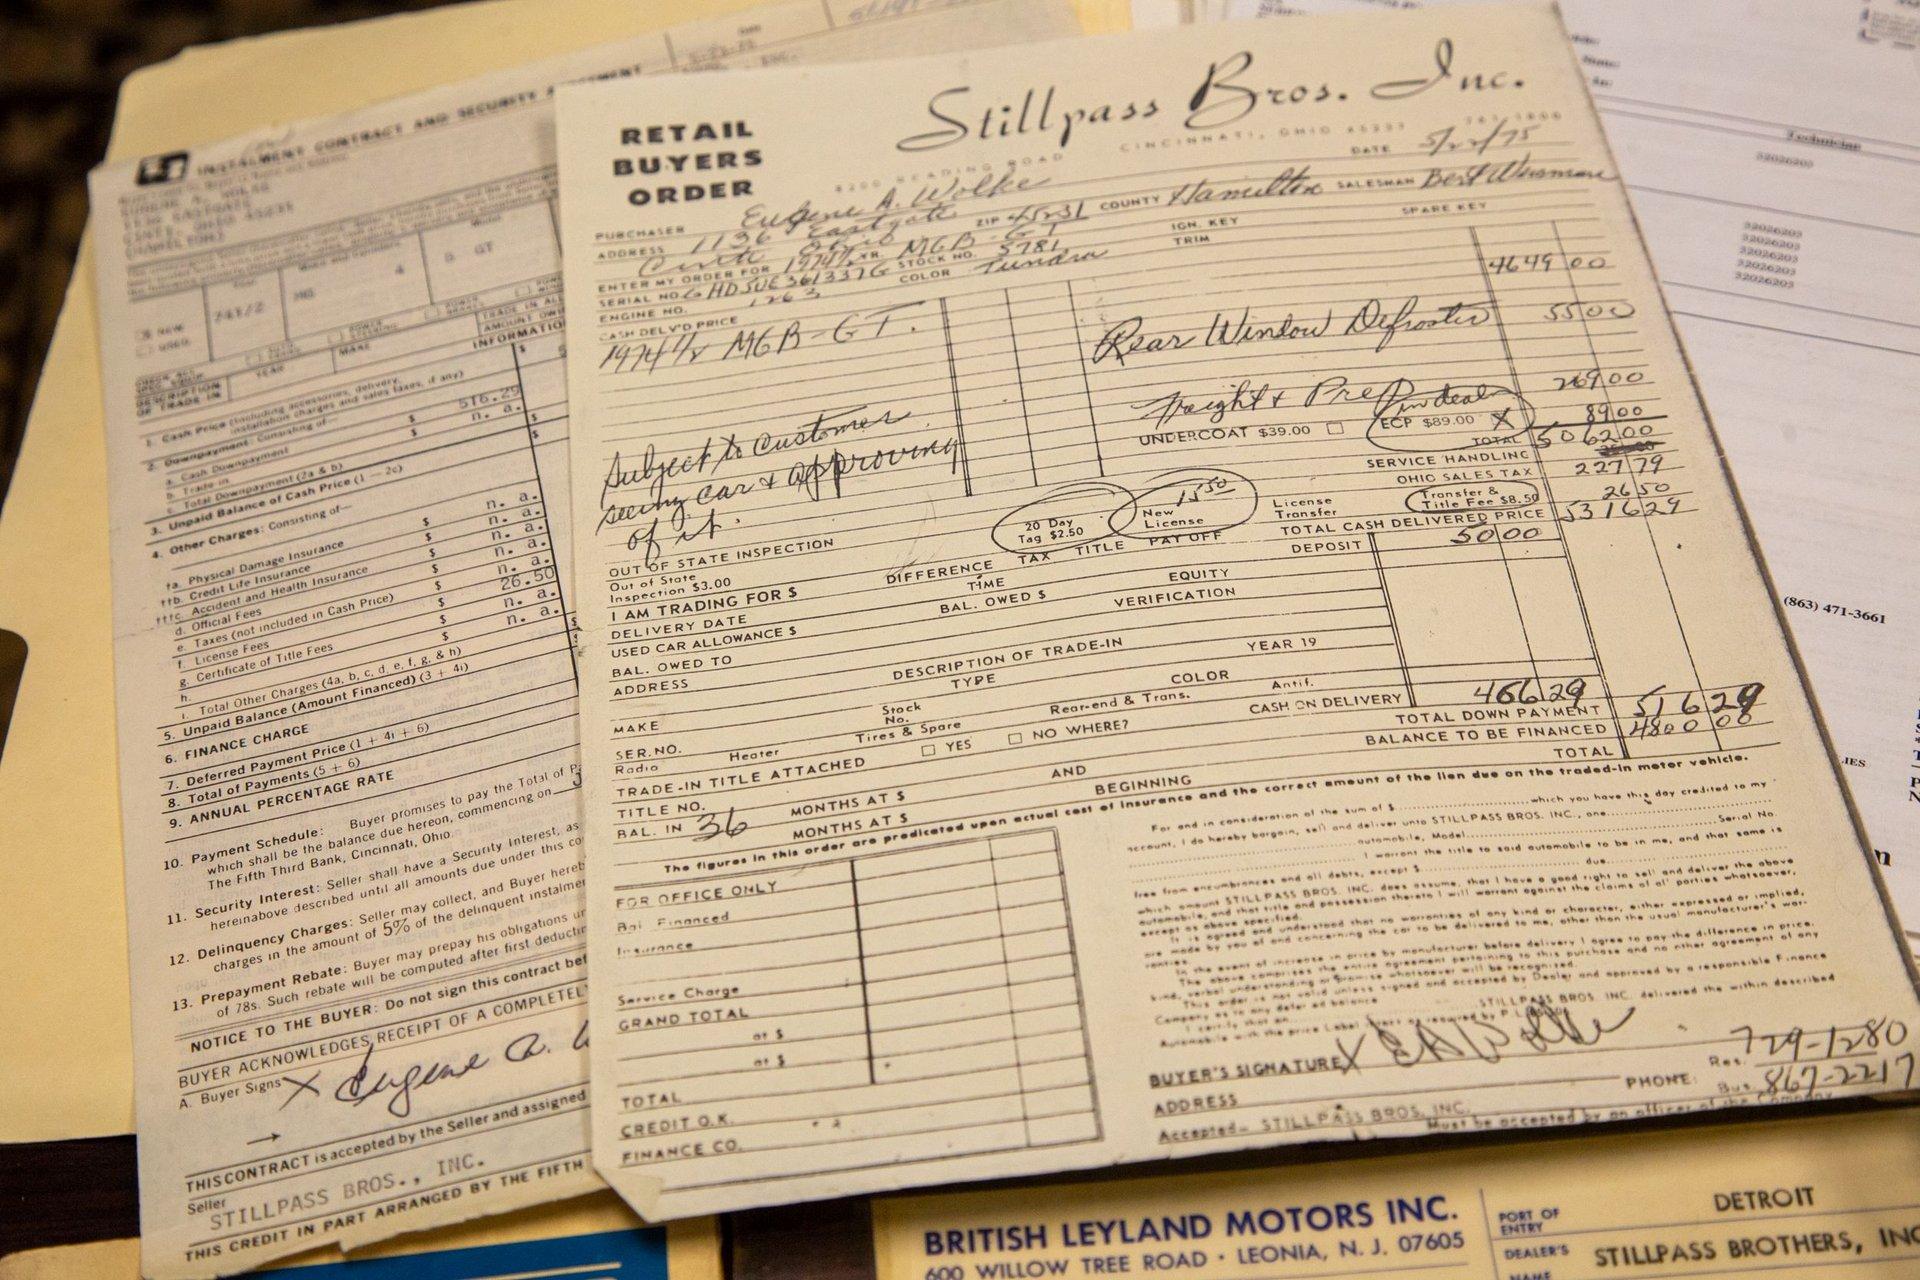 RETAIL
BUYERS
ORDER
Stillpass Bros. Inc.
8200 READING ROAD CINCINNATI, OHIO 45237 761-1800
DATE 5/22/75
PURCHASER Eugene A. Wolke
ADDRESS 1136 Eastgate ZIP 45231 COUNTY Hamilton SALESMAN Bert
Ohio
ENTER MY ORDER FOR 1974½ YR. MGB-GT IGN. KEY SPARE KEY
SERIAL NO. GHD5UE361337G STOCK NO. 5781 TRIM
ENGINE NO. 1263 COLOR Tundra
CASH DELV'D PRICE 4649 00
1974½ MGB-GT.
Rear Window Defroster 55 00
Freight & Prep 269 00
in deal
UNDERCOAT $39.00 ECP $89.00 X 89 00
TOTAL 5062 00
Subject to customer
seeing car & approving
of it.
SERVICE HANDLING
OHIO SALES TAX 227 79
20 Day
Tag $2.50
15 50
New
License
License
Transfer
Transfer &
Title Fee $8.50
26 50
OUT OF STATE INSPECTION TAX TITLE PAY OFF TOTAL CASH DELIVERED PRICE 5316 29
Out of State
Inspection $3.00
DIFFERENCE DEPOSIT 50 00
I AM TRADING FOR $ TIME EQUITY
DELIVERY DATE BAL. OWED $ VERIFICATION
USED CAR ALLOWANCE $
BAL. OWED TO
ADDRESS DESCRIPTION OF TRADE-IN YEAR 19
MAKE TYPE COLOR
SER. NO. Stock
No. Rear-end & Trans. Antif. CASH ON DELIVERY 466 29
Radio Heater Tires & Spare TOTAL DOWN PAYMENT 516 29
TRADE-IN TITLE ATTACHED YES NO WHERE? BALANCE TO BE FINANCED 4800 00
TITLE NO. AND TOTAL
BAL. IN 36 MONTHS AT $ BEGINNING
MONTHS AT $
The figures in this order are predicated upon actual cost of insurance and the correct amount of the lien due on the traded-in motor vehicle.
FOR OFFICE ONLY
Bal. Financed
Insurance
Service Charge
GRAND TOTAL
at $
at $
TOTAL
CREDIT O.K.
FINANCE CO.
For and in consideration of the sum of $ which you have this day credited to my
account, I do hereby bargain, sell and deliver unto STILLPASS BROS. INC., one
automobile, Model Serial No.
I warrant the title to said automobile to be in me, and that same is
free from encumbrances and all debts, except $ due
which amount STILLPASS BROS. INC. does assume, that I have a good right to sell and deliver the above
automobile, and that title and possession thereto I will warrant against the claims of all parties whatsoever,
except as above specified.
It is agreed and understood that no warranties of any kind or character, either expressed or implied,
are made by you of and concerning the car to be delivered to me, other than the usual manufacturer's war-
ranties.
In the event of increase in price by manufacturer before delivery I agree to pay the difference in price.
The above comprises the entire agreement pertaining to this purchase and no other agreement of any
kind, verbal understanding or promise whatsoever will be recognized.
This order is not valid unless signed and accepted by Dealer and approved by a responsible Finance
Company as to any deferred balance
I certify that on STILLPASS BROS. INC. delivered the within described
BUYER'S SIGNATURE X EA Wolke
ADDRESS PHONE: Res. 729-1280
Bus. 867-2217
Accepted— STILLPASS BROS. INC.
Must be accepted by an officer of the Company
INSTALMENT CONTRACT AND SECURITY AGREEMENT
EUGENE A. WOLKE
1136 EASTGATE
CINTI, OHIO 45231
(HAMILTON)
NEW
USED
74½ MG 4 B GT
MAKE
YEAR
DESCRIPTION
OF TRADE IN
INFORMATION
1. Cash Price (including accessories, delivery,
installation charges and sales taxes, if any) $
2. Downpayment: Consisting of—
a. Cash Downpayment $ 516.29
b. Trade in $ n. a.
c. Total Downpayment (2a & b) $
3. Unpaid Balance of Cash Price (1 — 2c) $
4. Other Charges: Consisting of—
†a. Physical Damage Insurance $ n. a.
††b. Credit Life Insurance $ n. a.
†††c. Accident and Health Insurance $ n. a.
d. Official Fees $ n. a.
e. Taxes (not included in Cash Price) $ n. a.
f. License Fees $ 26.50
g. Certificate of Title Fees $ n. a.
h. $ n. a.
i. Total Other Charges (4a, b, c, d, e, f, g, & h) $
5. Unpaid Balance (Amount Financed) (3 + 4i) $
6. FINANCE CHARGE
7. Deferred Payment Price (1 + 4i + 6)
8. Total of Payments (5 + 6)
9. ANNUAL PERCENTAGE RATE
10. Payment Schedule: Buyer promises to pay the Total of
which shall be the balance due hereon, commencing on
The Fifth Third Bank, Cincinnati, Ohio.
11. Security Interest: Seller shall have a Security Interest, as
hereinabove described until all amounts due under this
12. Delinquency Charges: Seller may collect, and Buyer
charges in the amount of 5% of the delinquent
13. Prepayment Rebate: Buyer may prepay his obligations
of 78s. Such rebate will be computed after first
NOTICE TO THE BUYER: Do not sign this contract
BUYER ACKNOWLEDGES RECEIPT OF A COMPLETELY
A. Buyer Signs X Eugene A.
THIS CONTRACT is accepted by the Seller and assigned
Seller
STILLPASS BROS., INC.
THIS CREDIT IN PART ARRANGED BY THE FIFTH
BRITISH LEYLAND MOTORS INC.
600 WILLOW TREE ROAD • LEONIA, N. J. 07605
PORT OF
ENTRY
DETROIT
DEALER'S
NAME
STILLPASS BROTHERS, INC
Technician
32026203
32026203
32026203
32026203
32026203
32026203
(863) 471-3661